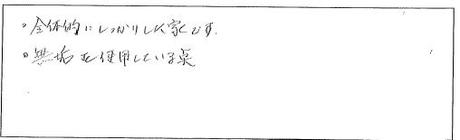 。全体的にしっかりした家です。
。無垢を使用している点